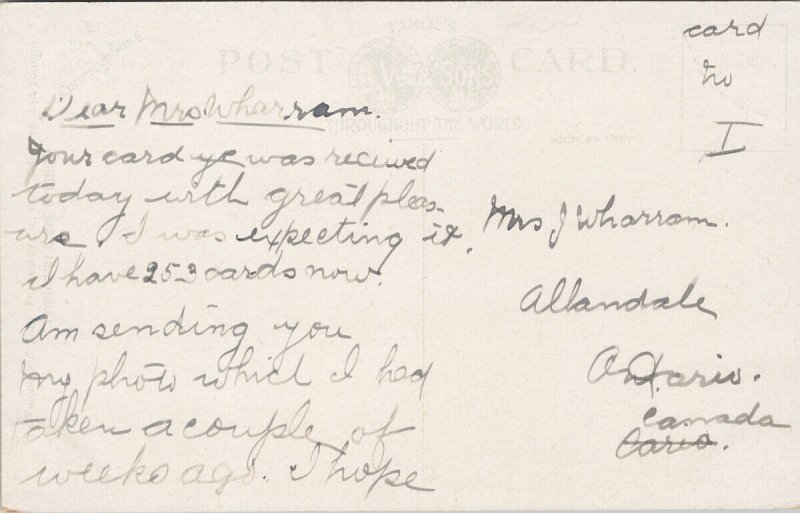 FAMOUS
POST CARD.
& SONS
THROUGHOUT THE WORLD
Address Only
card
no
I
Dear Mrs Wharram.
Your card yc was recived
today with great pleas-
ure. I was expecting it.
I have 253 cards now.
Am sending you
my photo which I had
taken a couple of
weeks ago. I hope
Mrs J Wharram.
Allandale
Ontario.
Canada